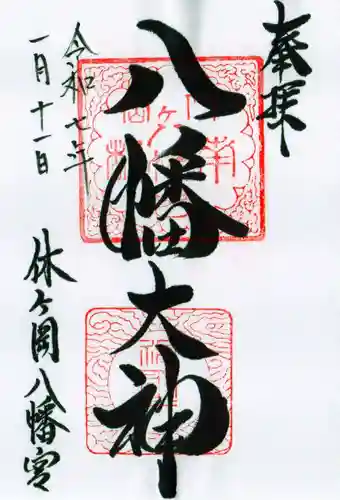 奉拝
八幡大神
令和七年
一月十一日
休ヶ岡八幡宮